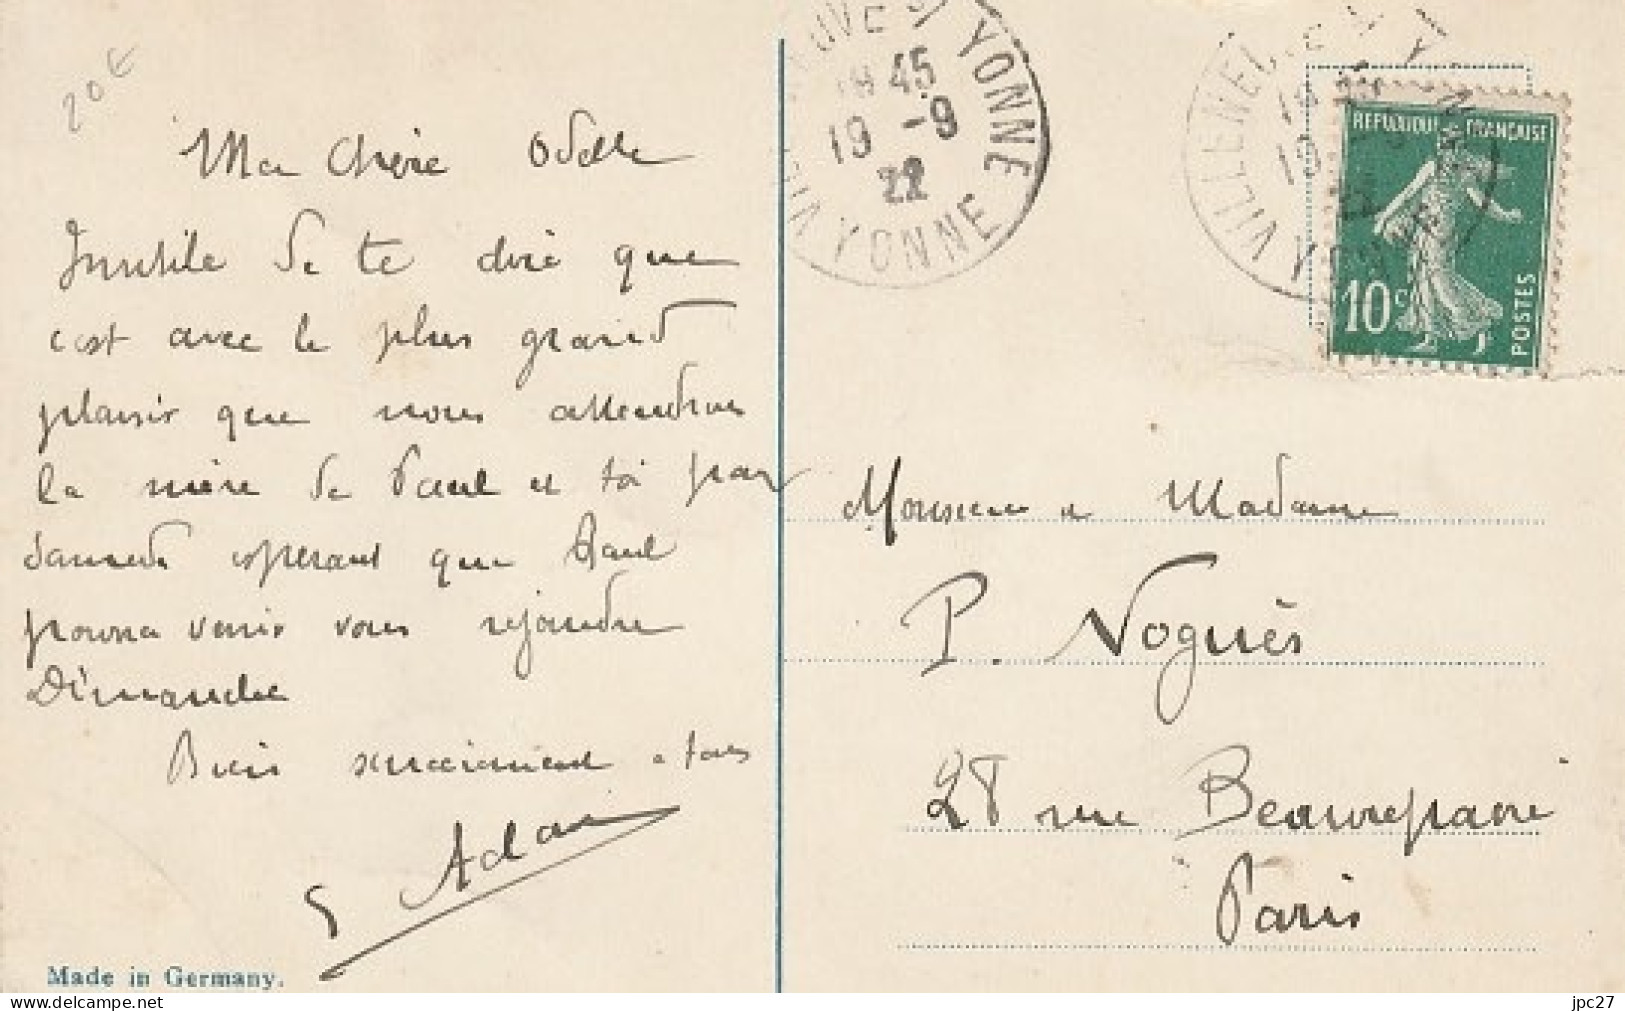 20€
Ma Chère Odette
Inutile de te dire que
c'est avec le plus grand
plaisir que nous attendrons
la mère de Paul et toi par
Samedi espérant que Paul
pourra venir vous rejoindre
Dimanche
Bien sincèrement a tous
Adam
Made in Germany.
YONNE
45
19 -9
22
YONNE
VILLENEU
YONNE
REPUBLIQUE FRANÇAISE
10c
POSTES
Monsieur & Madame
P. Noguès
28 rue Beaurepaire
Paris
jpc27